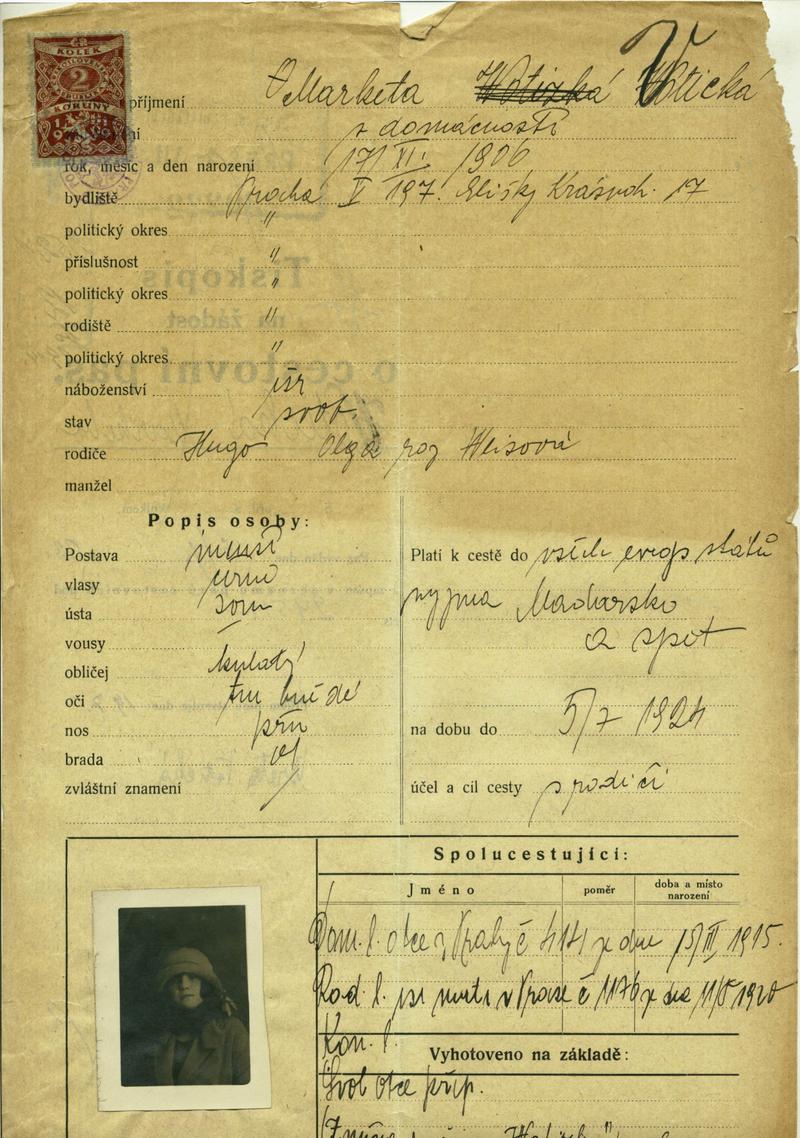 ČR
KOLEK
2
KORUNY
příjmení Marketa Wotizká Votická
ní z domácnosti
rok, měsíc a den narození 17/XI. 1906
bydliště Praha V 197. Elišky Krásnoh. 17
politický okres "
příslušnost "
politický okres "
rodiště "
politický okres "
náboženství isr
stav svob.
rodiče Hugo Olga roz Weisová
manžel
Popis osoby:
Postava menší
vlasy černé
ústa soum
vousy –
obličej kulatý
oči tm hnědé
nos přim
brada ov
zvláštní znamení /
Platí k cestě do všech evrop států
vyjma Maďarsko
a zpět
na dobu do 5/7 1924
účel a cíl cesty s rodiči
Spolucestující:
Jméno poměr doba a místo narození
Dom. l. otce z Prahy č 414 ze dne 15/III 1915.
Rod. l. isr v Praze č 1176 ze dne 11/5 1920
Vyhotoveno na základě:
Svol otce přip.